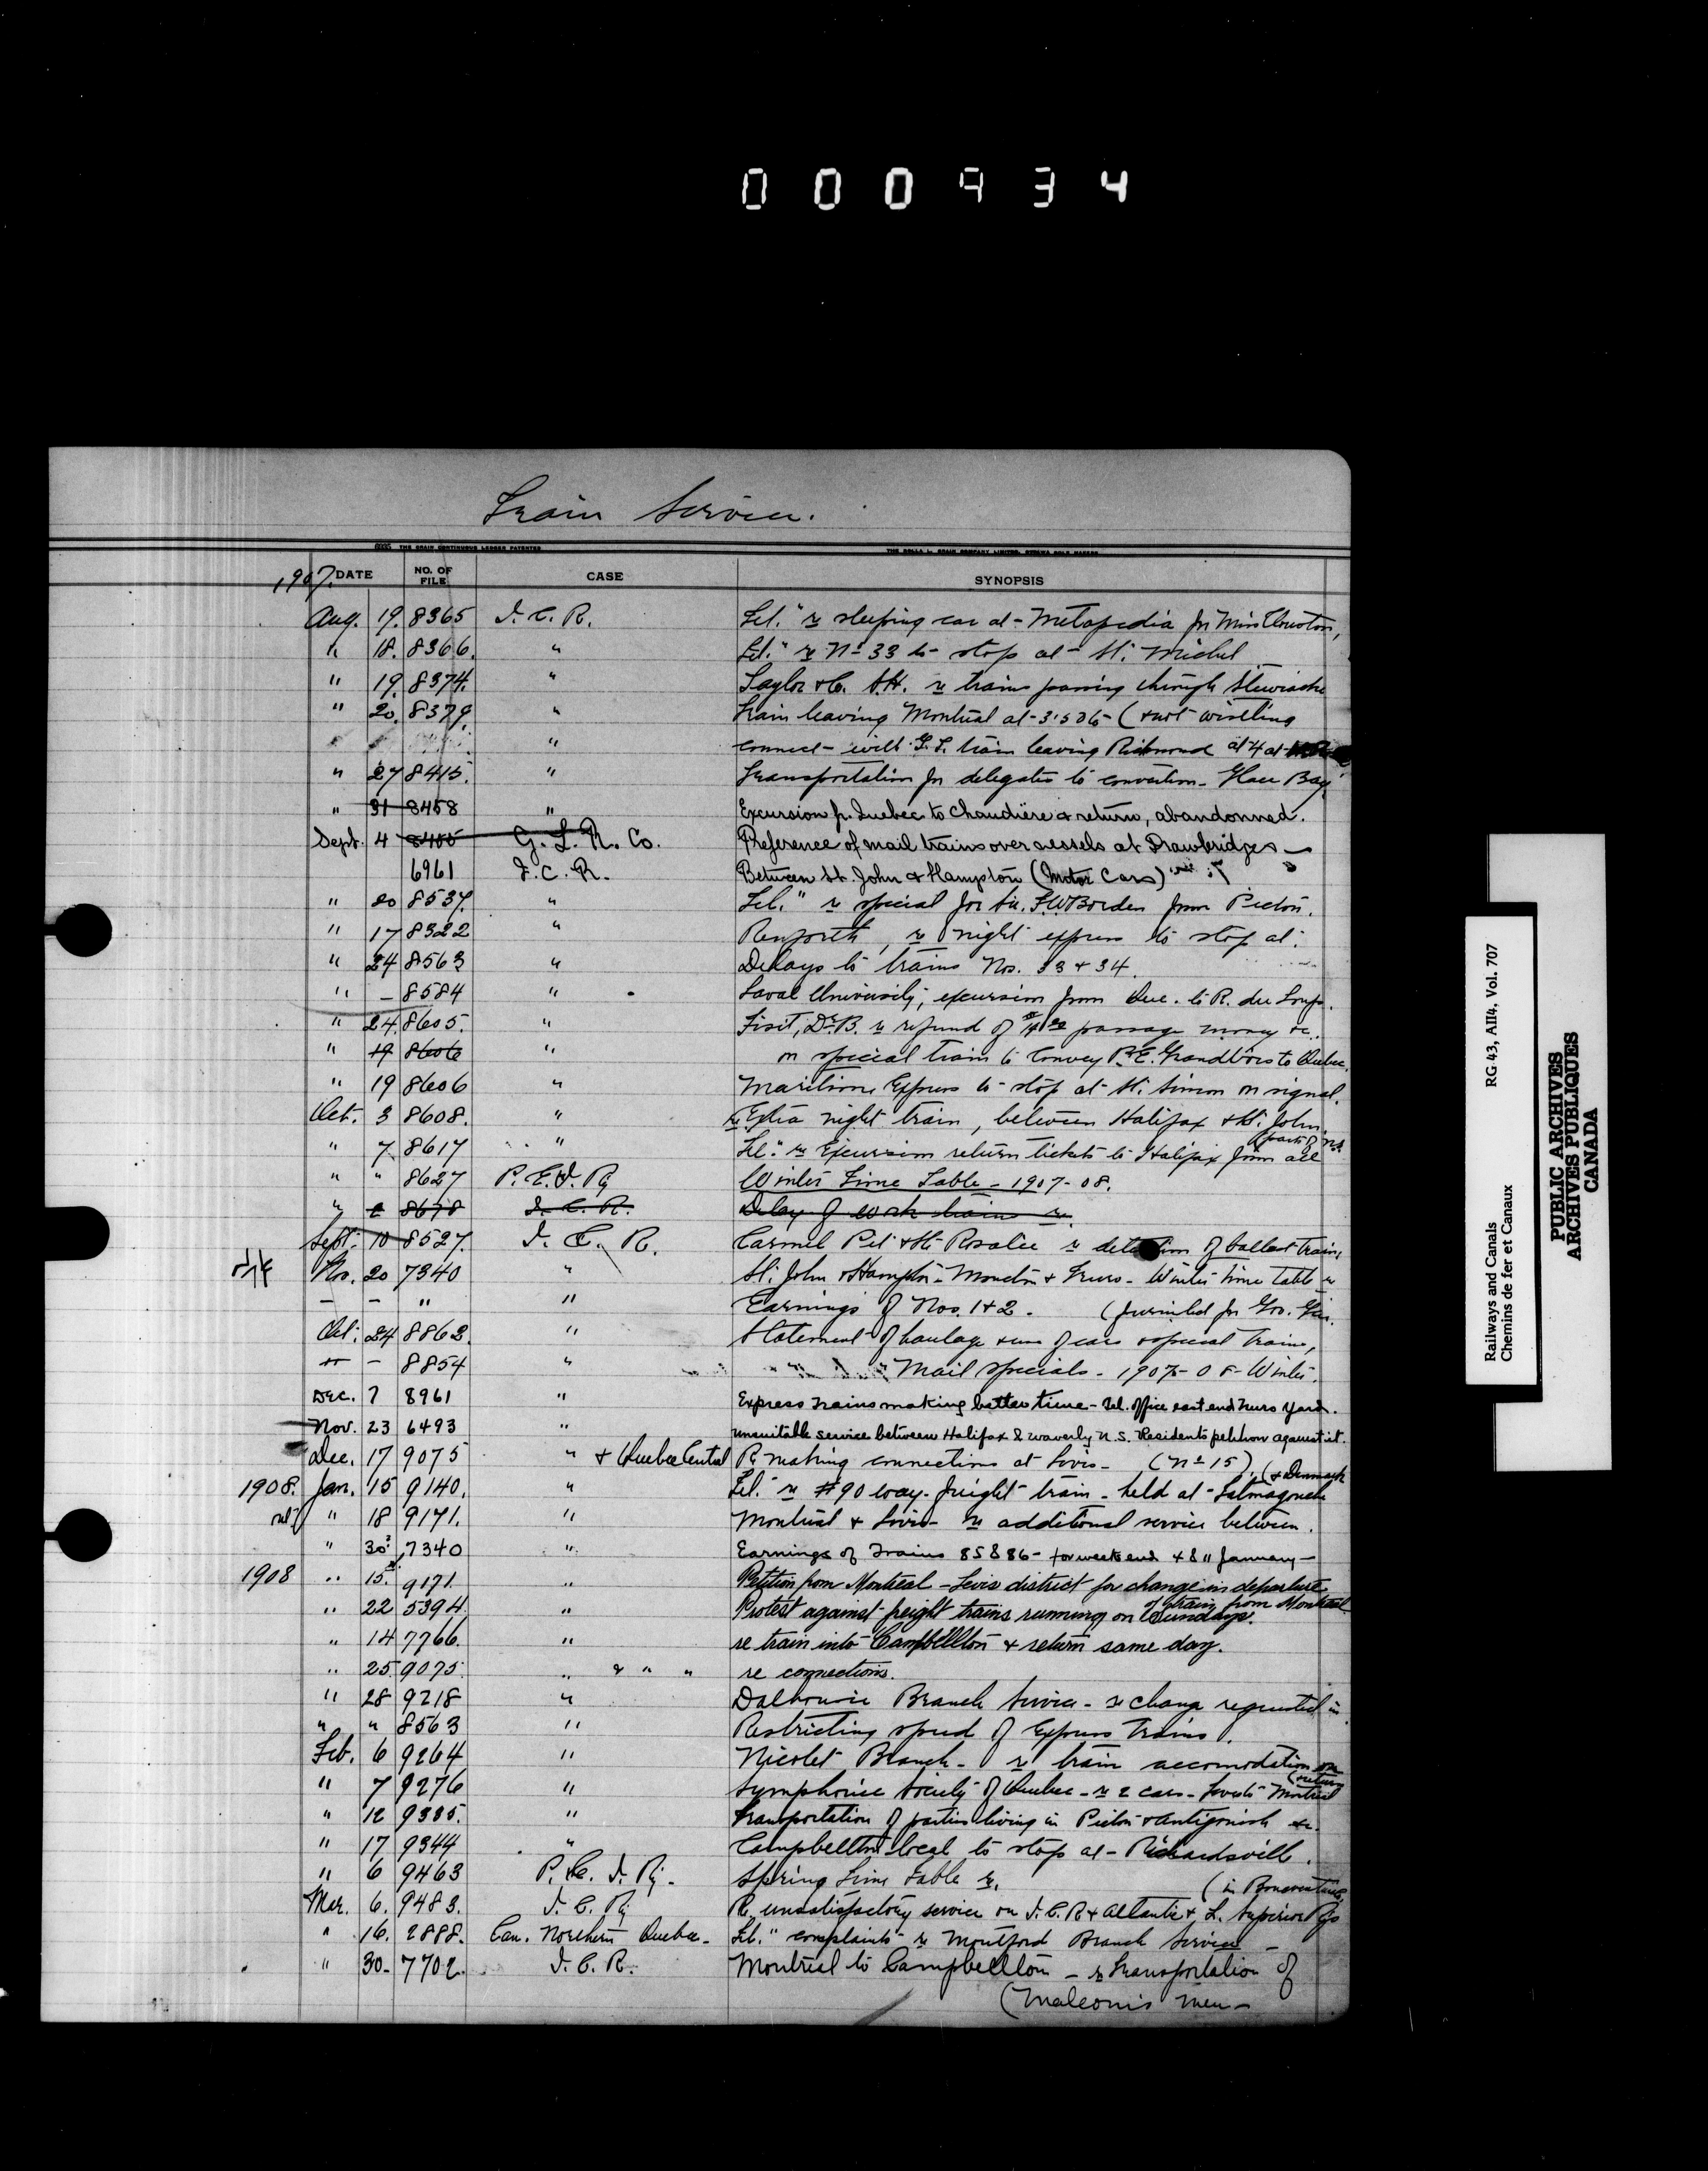 000934
Train Service.
1907. DATE NO. OF FILE CASE SYNOPSIS
Aug. 19. 8365 I. C. R. Tel." re sleeping car at Metapedia for Miss
" 18. 8366. " Tel." re No 33 to stop at St. Michel
" 19. 8374. " Taylor & Co. re trains passing through Stewiacke
" 20. 8379. " Train leaving Montreal at
" connect with G.T. train leaving Richmond at 4 at
" 27 8415. " Transportation for delegates to convention - Glace Bay
" 31 8458 " Excursion fr. Quebec to Chaudière & return, abandonned.
Sept. 4 8455 G. T. R. Co. Preference of mail trains over vessels at Drawbridges —
6961 I. C. R. Between St. John & Hampton (Motor Cars)
" 20 8537. " Tel." re special for Sir F.W. Borden from Pictou.
" 17 8322 " Renforth, re night express to stop at.
" 24 8563 " Delays to trains Nos. 33 & 34.
" – 8584 " Laval University, excursion from Que. to R. du Loup.
" 24. 8605. " Fiset, Dr. B. re refund of passage money &c.
" 19 8606 " on special train to convey Grandbois to Quebec.
" 19 8606 " Maritime Express to stop at St. Simon on signal.
Oct. 3 8608. " re Extra night train, between Halifax & St. John.
" 7 8617 " Tel." re Excursion return tickets to Halifax from all (parts of N.S.
" " 8627 P. E. I. Ry Winter Time Table - 1907-08.
" 2 8678 I. C. R. Delay of work trains re.
Sept. 10 8527. I. C. R. Carmel Pit & Ste Rosalie re detention of ballast trains
No. 20 7340 " St. John & Hampton - Moncton & Truro - Winter time table re
– – " " Earnings of Nos. 1 & 2. (furnished for Gov. Gen.
Oct. 24 8862. " Statement of haulage & use of cars & special trains,
– 8854 " " Mail specials - 1907-08 - Winter.
Dec. 7 8961 " Express trains making better time - Tel. office east end Truro yard.
Nov. 23 6493 " unsuitable service between Halifax & Waverly N.S. Residents petition against it.
Dec. 17 9075 " & Quebec Central R. making connections at Levis - (No 15).
1908. Jan. 15 9140. " Tel." re #90 way-freight train - held at Tatmagouche (& Denmark
" 18 9171. " Montreal & Levis - re additional service between.
" 30. 7340 " Earnings of Trains 85 & 86 - for weeks end 4 & 11 January —
1908 " 15. 9171. " Petition from Montreal - Levis district for change in departure of train from Montreal
" 22 5394. " Protest against freight trains running on Sundays.
" 14 7766. " re train into Campbellton & return same day.
" 25 9075. " & " " re connections.
" 28 9218 " Dalhousie Branch Service - re change requested in
" " 8563 " Restricting speed of Express trains.
Feb. 6 9264 " Nicolet Branch - re train accomodation on
" 7 9276 " Symphonie Society of Quebec - re 2 cars - Levis to Montreal (& return
" 12 9335. " Transportation of parties living in Pictou & Antigonish &c.
" 17 9344 " Campbellton local to stop at - Richardsville.
" 6 9463 P. E. I. Ry. Spring Time Table re.
Mar. 6. 9483. I. C. Ry Re unsatisfactory service on I.C.R & Atlantic & L. Superior Rys (in Bonaventure
" 16. 2888. Can. Northern Quebec. Tel." complaints re Montford Branch Service —
" 30. 7702. I. C. R. Montreal to Campbellton - re Transportation of
(Malcom's men -
Railways and Canals RG 43, AII4, Vol. 707
Chemins de fer et Canaux
PUBLIC ARCHIVES
ARCHIVES PUBLIQUES
CANADA